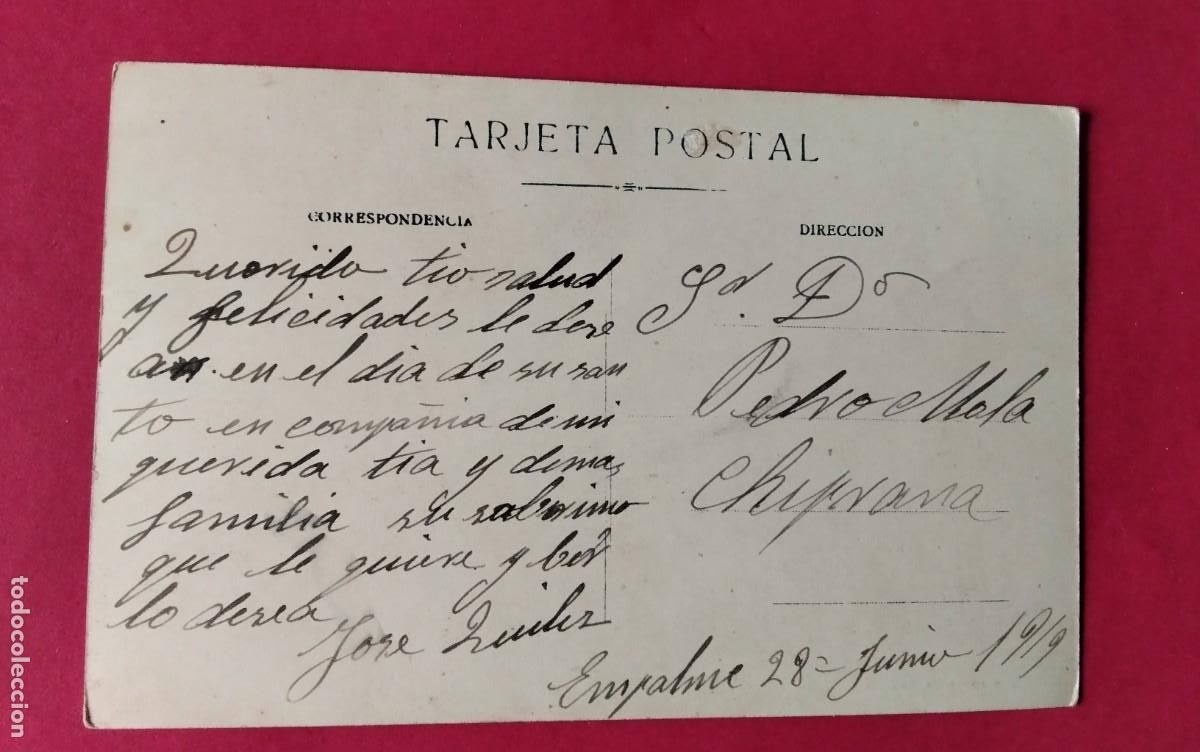 TARJETA POSTAL
CORRESPONDENCIA
Querido tio salud
y felicidades le dese
an. en el dia de su san
to en compañia de mi
querida tia y demas
familia su sabrimo
que le quiere y ber
lo desea
Jose Quilez
DIRECCION
Sr. Dn
Pedro Mala
Chiprana
Empalme 28=Junio 1919
todocoleccion